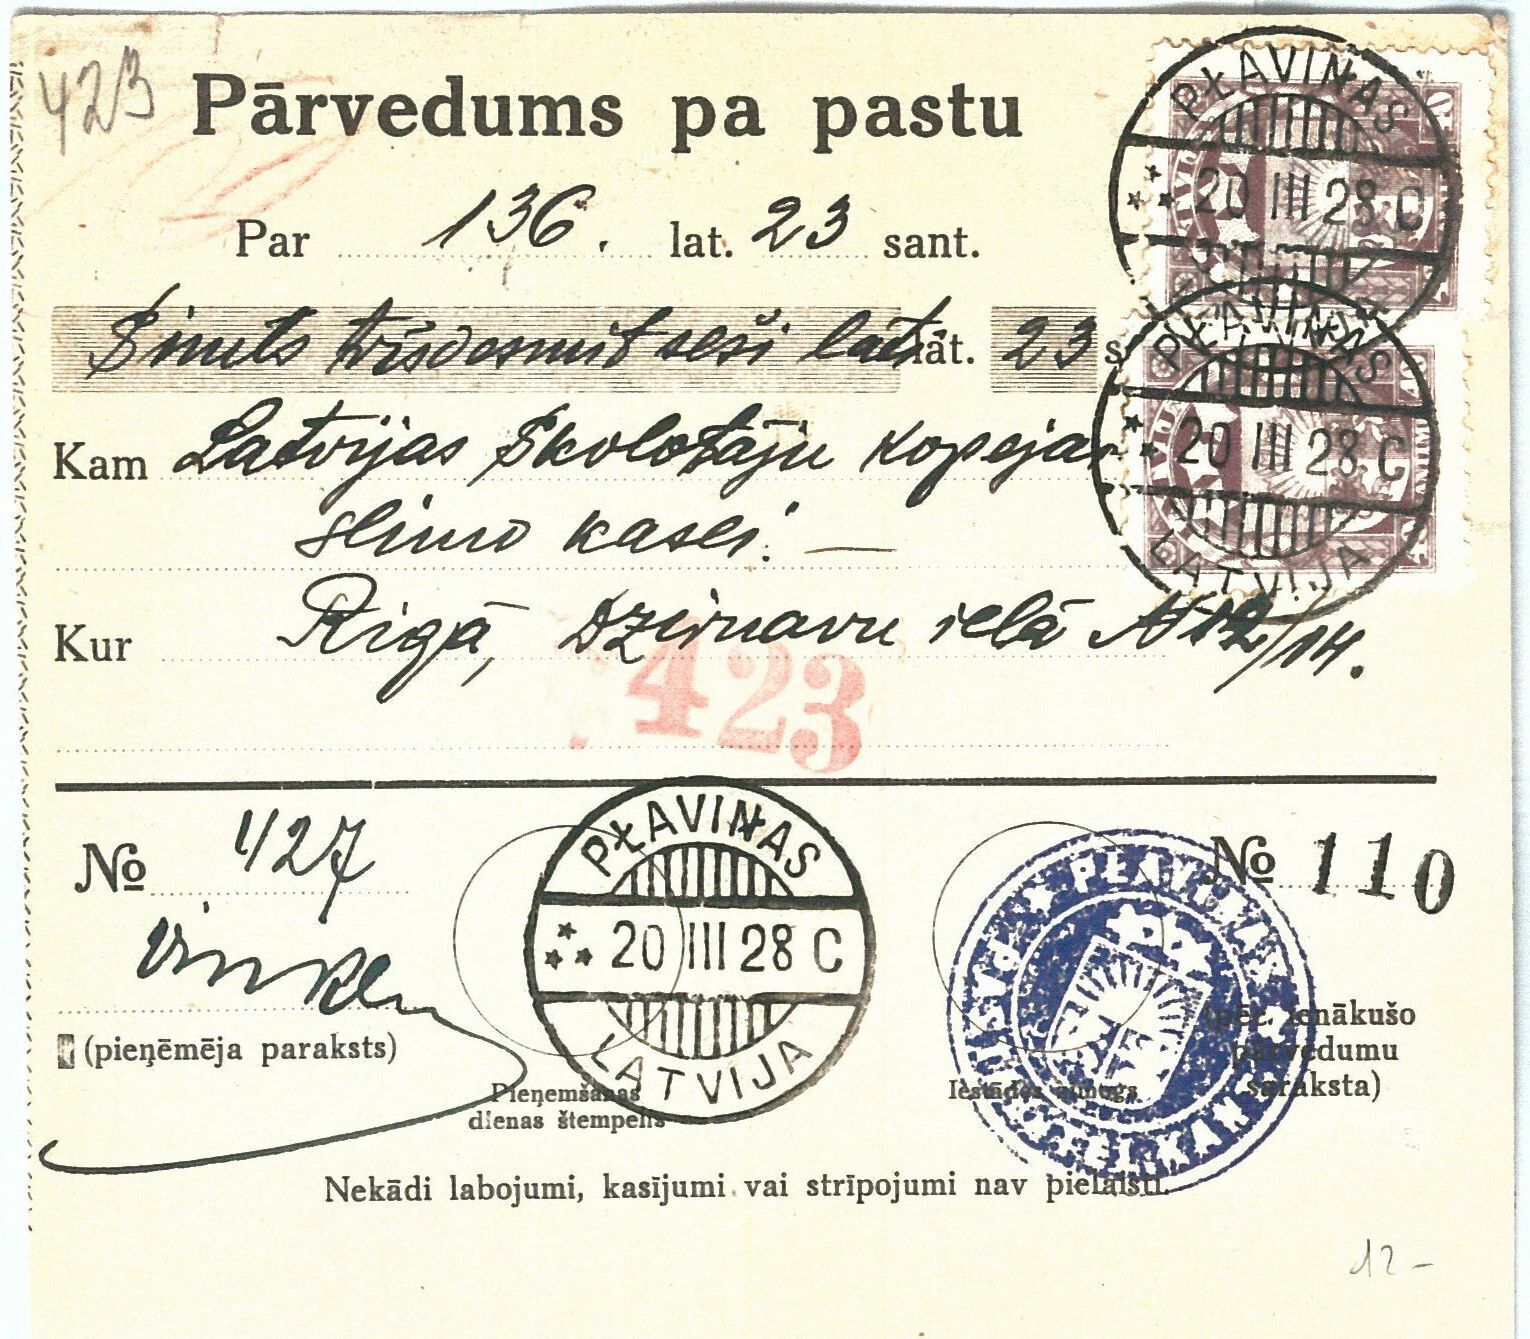 423
Pārvedums pa pastu
Par 136. lat. 23 sant.
Simts trīsdesmit seši lati lat. 23 s
Kam Latvijas Skolotāju kopejai
slimo kasei. —
Kur Rigā, Dzirnavu ielā № 12/14.
423
PĻAVIŅAS
20 III 28 C
PĻAVIŅAS
20 III 28 C
LATVIJA
40
40
No 427
(pieņēmēja paraksts)
PĻAVIŅAS
20 III 28 C
LATVIJA
Pieņemšanas
dienas štempelis
Iestādes zīmogs
No 110
(pēc ienākušo
pārvedumu
saraksta)
Nekādi labojumi, kasījumi vai strīpojumi nav pielaisti.
12-